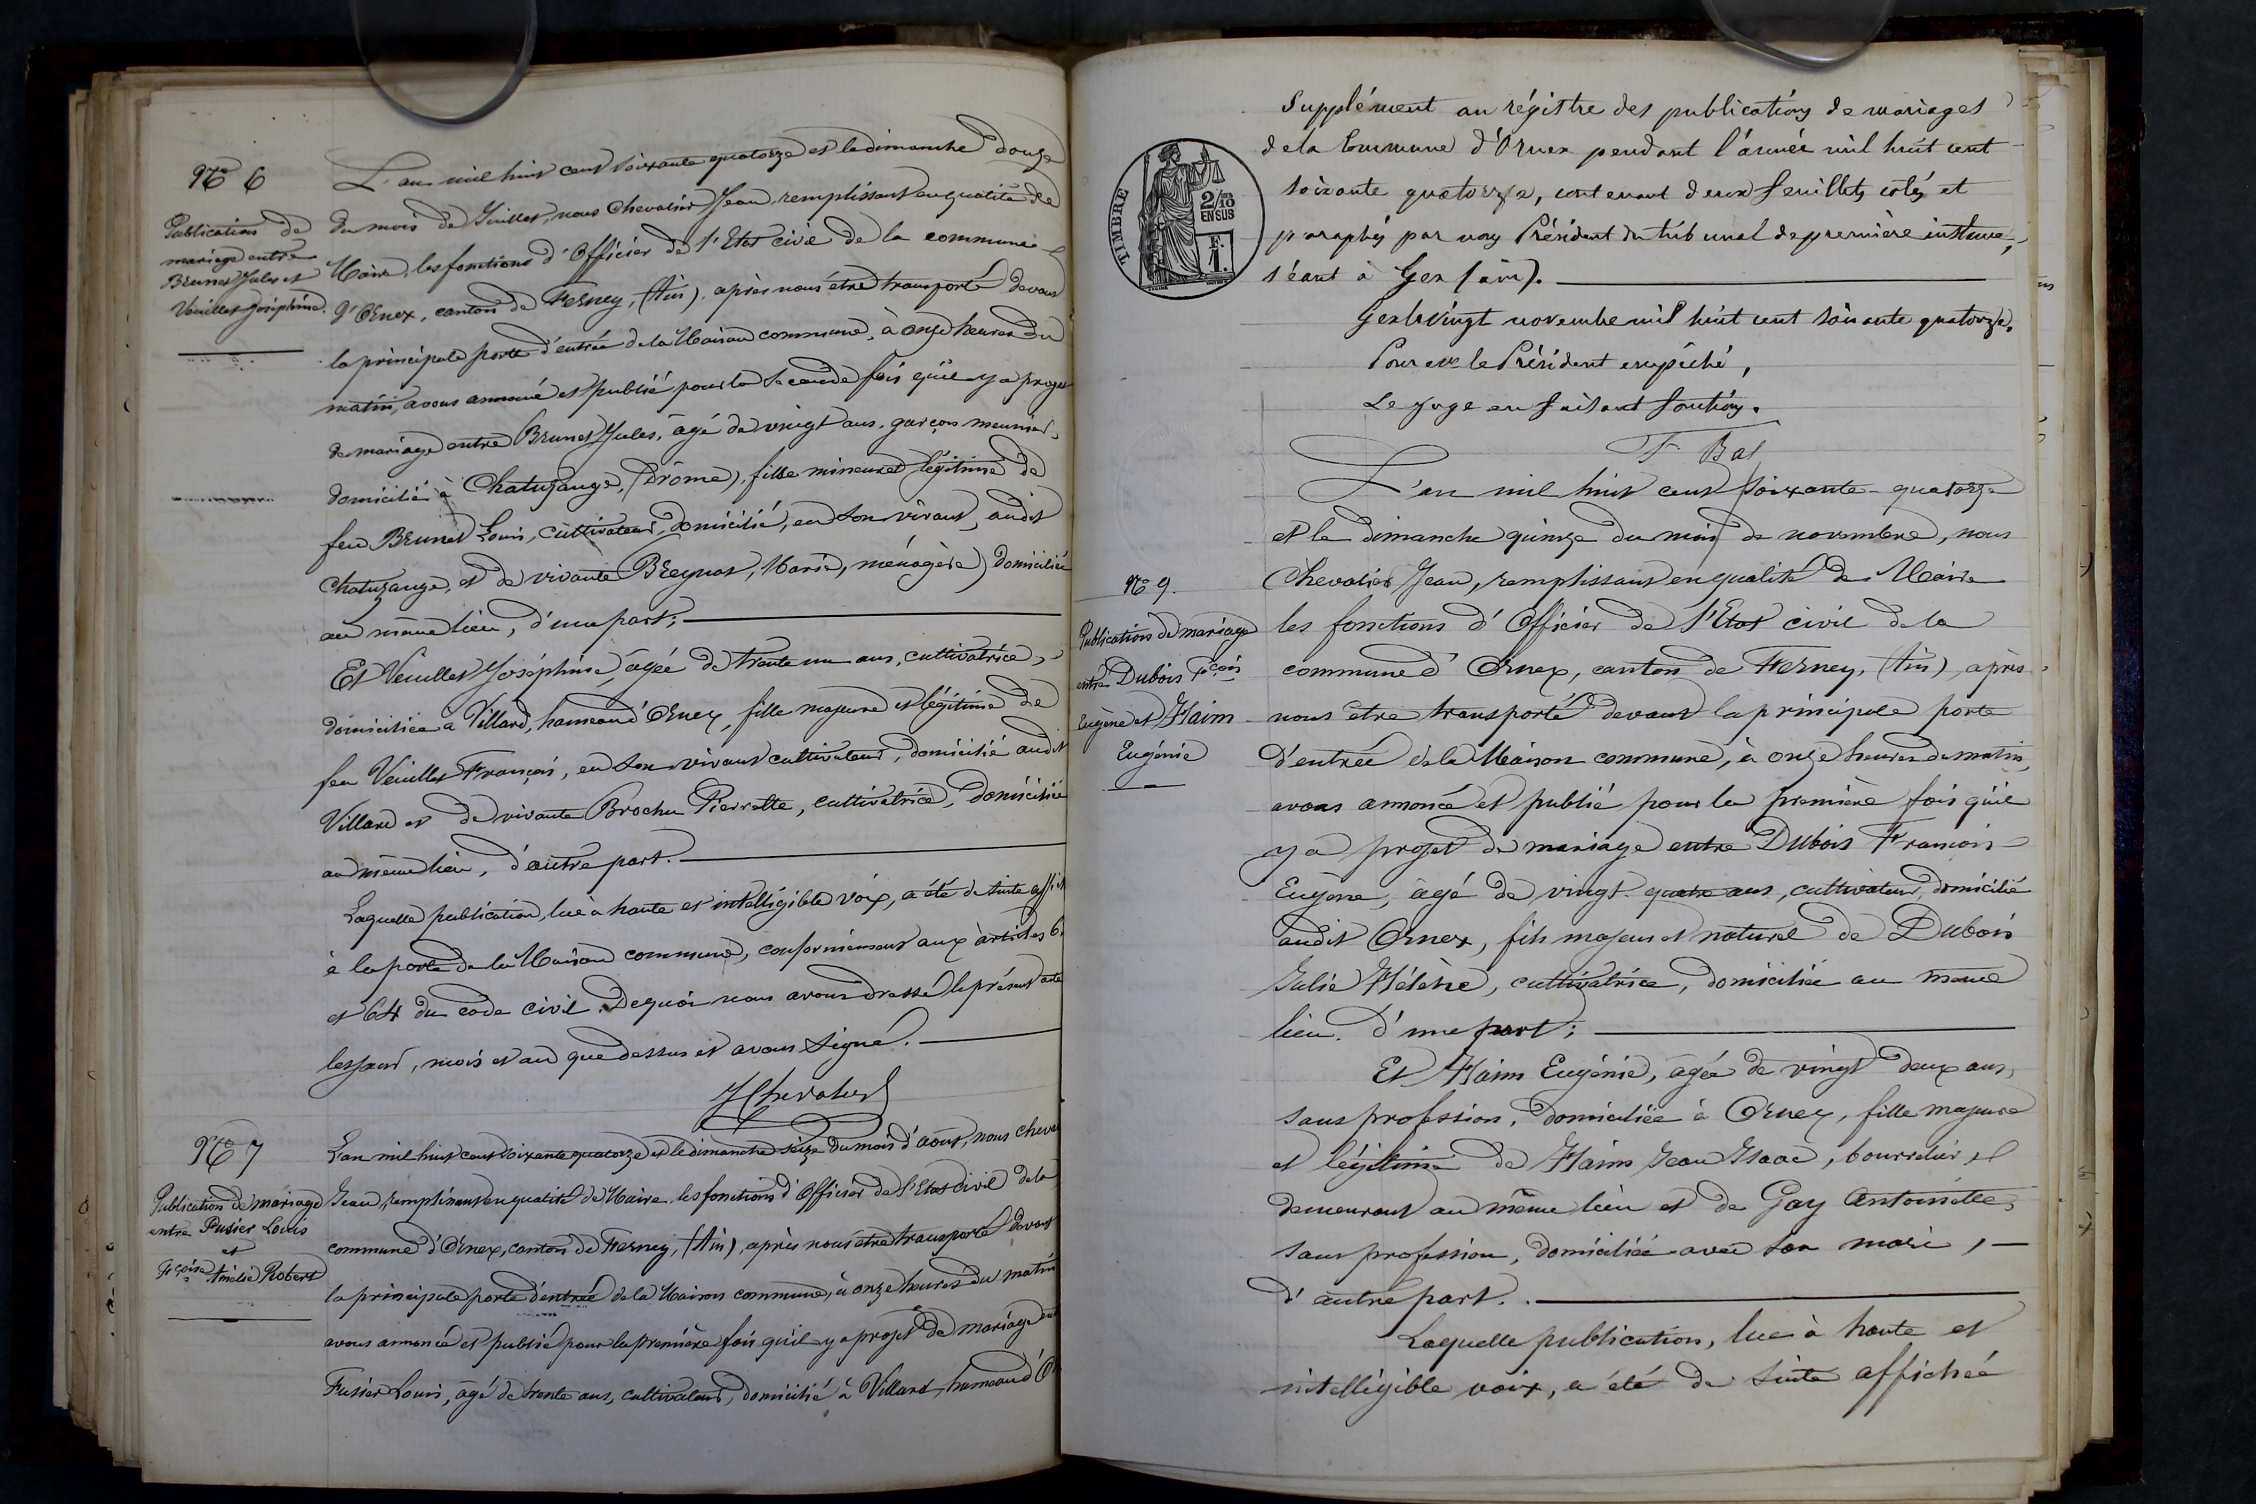 No 6
Publication de
mariage entre
Brunet Jules et
Veuillet Joséphine.
L'an mil huit cent soixante quatorze et le dimanche douze
du mois de Juillet, nous Chevalier Jean, remplissant en qualité de
Maire les fonctions d'Officier de l'Etat civil de la commune
d'Ornex, canton de Ferney, (Ain), après nous être transporté devant
la principale porte d'entrée de la Maison commune, à onze heures du
matin, avons annoncé et publié pour la seconde fois qu'il y a projet
de mariage entre Brunet Jules, âgé de vingt ans, garçon meunier,
domicilié à Chatuzange, (Drôme), fils mineur et légitime de
feu Brunet Louis, cultivateur, domicilié, en son vivant, audit
Chatuzange, et de vivante Breynat, Marie, ménagère, domiciliée
au même lieu, d'une part;
Et Veuillet Joséphine, âgée de trente un ans, cultivatrice,
domiciliée à Villard, hameau d'Ornex, fille majeure et légitime de
feu Veuillet François, en son vivant cultivateur, domicilié audit
Villard et de vivante Brochu Pierrette, cultivatrice, domiciliée
au même lieu, d'autre part.
Laquelle publication, lue à haute et intelligible voix, a été de suite affich
à la porte de la Maison commune, conformément aux articles 6
et 64 du code civil. De quoi nous avons dressé le présent acte
les jour, mois et an que dessus et avons signé.
J Chevalier
No 7
Publication de mariage
entre Fusier Louis
et
Fçoise Amélie Robert
L'an mil huit cent soixante quatorze et le dimanche seize du mois d'août, nous Cheva
Jean, remplissant en qualité de Maire les fonctions d'Officier de l'Etat civil de la
commune d'Ornex, canton de Ferney, (Ain), après nous être transporté devant
la principale porte d'entrée de la Maison commune, à onze heures du matin
avons annoncé et publié pour la première fois qu'il y a projet de mariage ent
Fusier Louis, âgé de trente ans, cultivateur, domicilié à Villard, hameau d'O
TIMBRE
2/10
EN SUS
F.
1.
Supplément au régistre des publications de mariages
de la Commune d'Ornex pendant l'année mil huit cent
soixante quatorze, contenant deux feuillets cotés et
paraphés par nous Président du tribunal de première instance,
séant à Gex (ain).
Gex le vingt novembre mil huit cent soixante quatorze.
Pour le Président empêché,
Le Juge en faisant fonctions.
F. Bal
L'an mil huit cent soixante-quatorze
et le dimanche quinze du mois de novembre, nous
No 9.
Publication de mariage
entre Dubois Fçois
Eugène et Haim
Eugénie
Chevalier Jean, remplissant en qualité de Maire
les fonctions d'Officier de l'Etat civil de la
commune d'Ornex, canton de Ferney, (Ain), après
nous être transporté devant la principale porte
d'entrée de la Maison commune, à onze heures du matin,
avons annoncé et publié pour la première fois qu'il
y a projet de mariage entre Dubois François
Eugène, âgé de vingt-quatre ans, cultivateur, domicilié
audit Ornex, fils majeur et naturel de Dubois
Julie Hélène, cultivatrice, domiciliée au même
lieu. d'une part;
Et Haim Eugénie, âgée de vingt deux ans,
sans profession, domiciliée à Ornex, fille majeure
et légitime de Haim Jean Isaac, bourrelier,
demeurant au même lieu et de Gay Antoinette,
sans profession, domiciliée avec son mari,
d'autre part.
Laquelle publication, lue à haute et
intelligible voix, a été de suite affichée